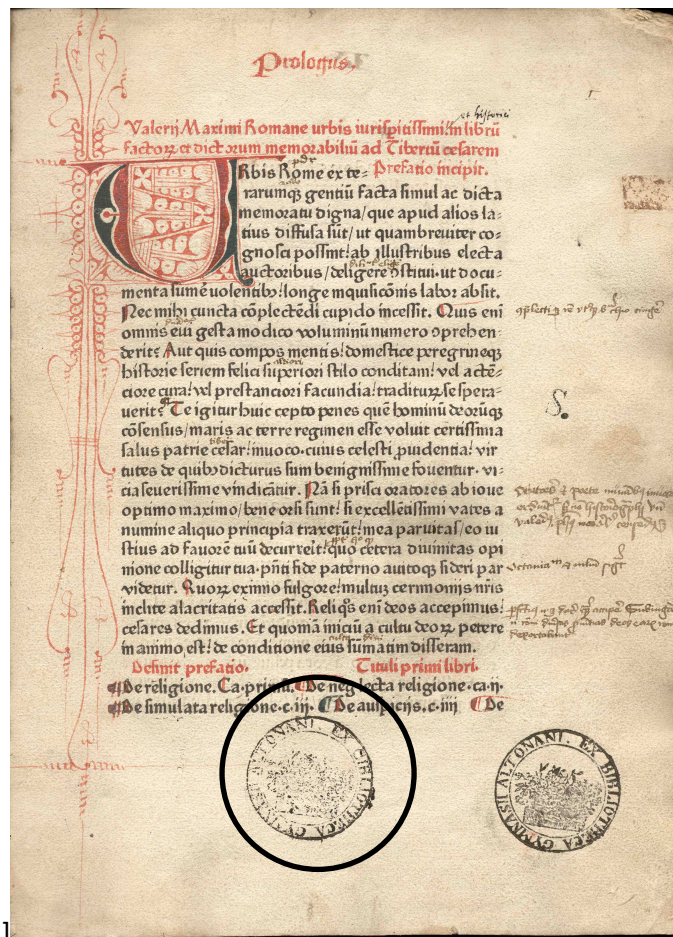 Prologus.
1
et historici
Valerij Maximi Romane urbis iurisꝑitissimi in librū
factoꝝ et dictorum memorabiliū ad Tiberiū cesarem
Prefatio incipit.
URbis Rome ex te-
rarumqꝫ gentiū facta simul ac dicta
memoratu digna/ que apud alios la-
tius diffusa sūt/ ut quambreuiter co-
gnosci possint: ab illustribus electa
auctoribus/ deligere ↄstitui. ut docu-
menta sumē uolentibꝰ: longe inquisicōnis labor absit.
Nec mihi cuncta cōplectēdi cupido incessit. Quis eni
omnis eui gesta modico voluminū numero ↄprehen-
derit? Aut quis compos mentis: domestice peregrineqꝫ
historie seriem felici superiori stilo conditam: vel actē-
ciore cura: vel prestanciori facundia: traditurꝫ se spera-
uerit? Te igitur huic cepto penes quē hominū deorūqꝫ
cōsensus/ maris ac terre regimen esse voluit certissima
salus patrie cesar: inuoco. cuius celesti ꝓuidentia: vir-
tutes de quibꝰ dicturus sum benignissime fouentur. vi-
cia seuerissime vindicātur. Nā si prisci oratores ab ioue
optimo maximo/ bene orsi sunt: si excellētissimi vates a
numine aliquo principia traxerūt: mea paruitas/ eo iu
stius ad fauorē tuū decurreit: quo cetera diuinitas opi
nione colligitur tua. pn̄ti fide paterno auitoqꝫ sideri par
videtur. Quoꝝ eximio fulgore: multuꝫ cerimonijs nr̄is
inclite alacritatis accessit. Reliqꝰ eni deos accepimus:
cesares dedimus. Et quoniā iniciū a cultu deoꝝ petere
in animo est: de conditione eius sūmatim disseram.
Definit prefatio. Tituli primi libri.
De religione. Ca. primū. De neglecta religione. ca. ij.
De simulata religione. c. iij. De auspicijs. c. iiij De
S.
GYMNASII ALTONANI. EX BIBLIOTHECA
GYMNASII ALTONANI. EX BIBLIOTHECA
1